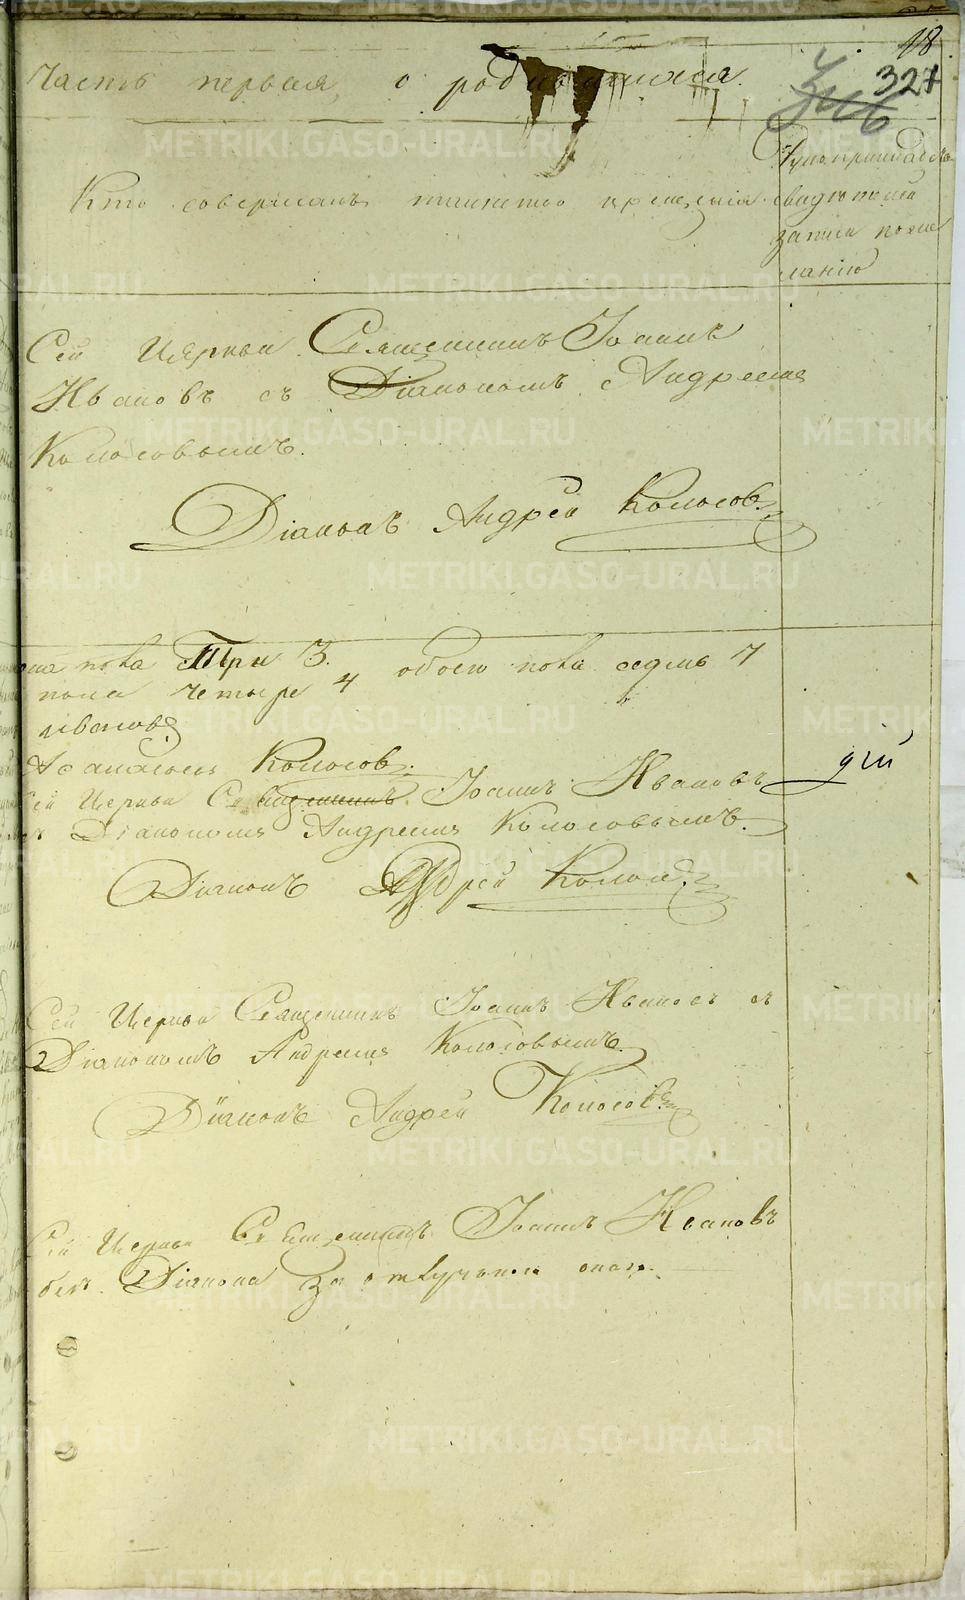 18
321
Часть первая, о родившихся
Кто совершалъ таинство крещенія.
Рукоприкладство
свидетелей
записи по же
ланію
Сей Церкви Священникъ Іоаннъ
Ивановъ съ Діакономъ Андреемъ
Колосовымъ.
Діаконъ Андрей Колосов
пола Три 3. обоего пола седмь 7
пола четыре 4
Ивановъ
Колосов
Сей Церкви Священникъ Іоаннъ Ивановъ
Діакономъ Андреемъ Колосовымъ.
Діаконъ Андрей Колосов
Сей Церкви Священникъ Іоаннъ Ивановъ съ
Діакономъ Андреемъ Колосовымъ.
Діаконъ Андрей Колосовъ
Сей Церкви Священникъ Іоаннъ Ивановъ
безъ Діакона за отлучкою онаго.
METRIKI.GASO-URAL.RU